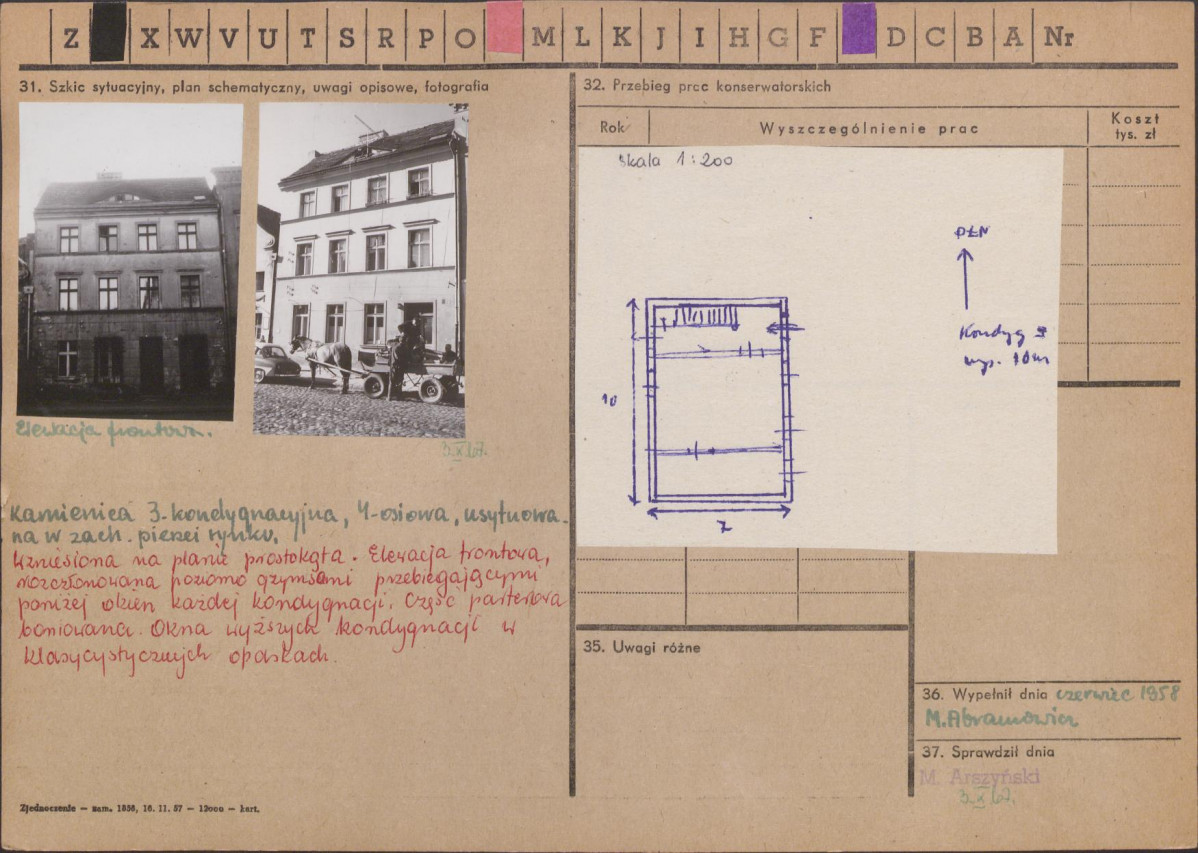 Z X W V U T S R P O M L K J I H G F D C B A Nr
31. Szkic sytuacyjny, plan schematyczny, uwagi opisowe, fotografia
Elewacja frontowa.
3.X.67.
Kamienica 3-kondygnacyjna, 4-osiowa, usytuowa-
na w zach. pierzei rynku.
Wzniesiona na planie prostokąta. Elewacja frontowa,
rozczłonowana poziomo gzymsami przebiegającymi
poniżej okien każdej kondygnacji. Część parterowa
boniowana. Okna wyższych kondygnacji w
klasycystycznych opaskach.
Zjednoczenie — zam. 1856, 16. 11. 57 — 12000 — kart.
32. Przebieg prac konserwatorskich
Rok
Wyszczególnienie prac
Koszt
tys. zł
Skala 1:200
PŁN
Kondyg
wys. 10m
10
7
35. Uwagi różne
36. Wypełnił dnia czerwiec 1958
M. Abramowicz
37. Sprawdził dnia
M. Arszyński
3.X.67.